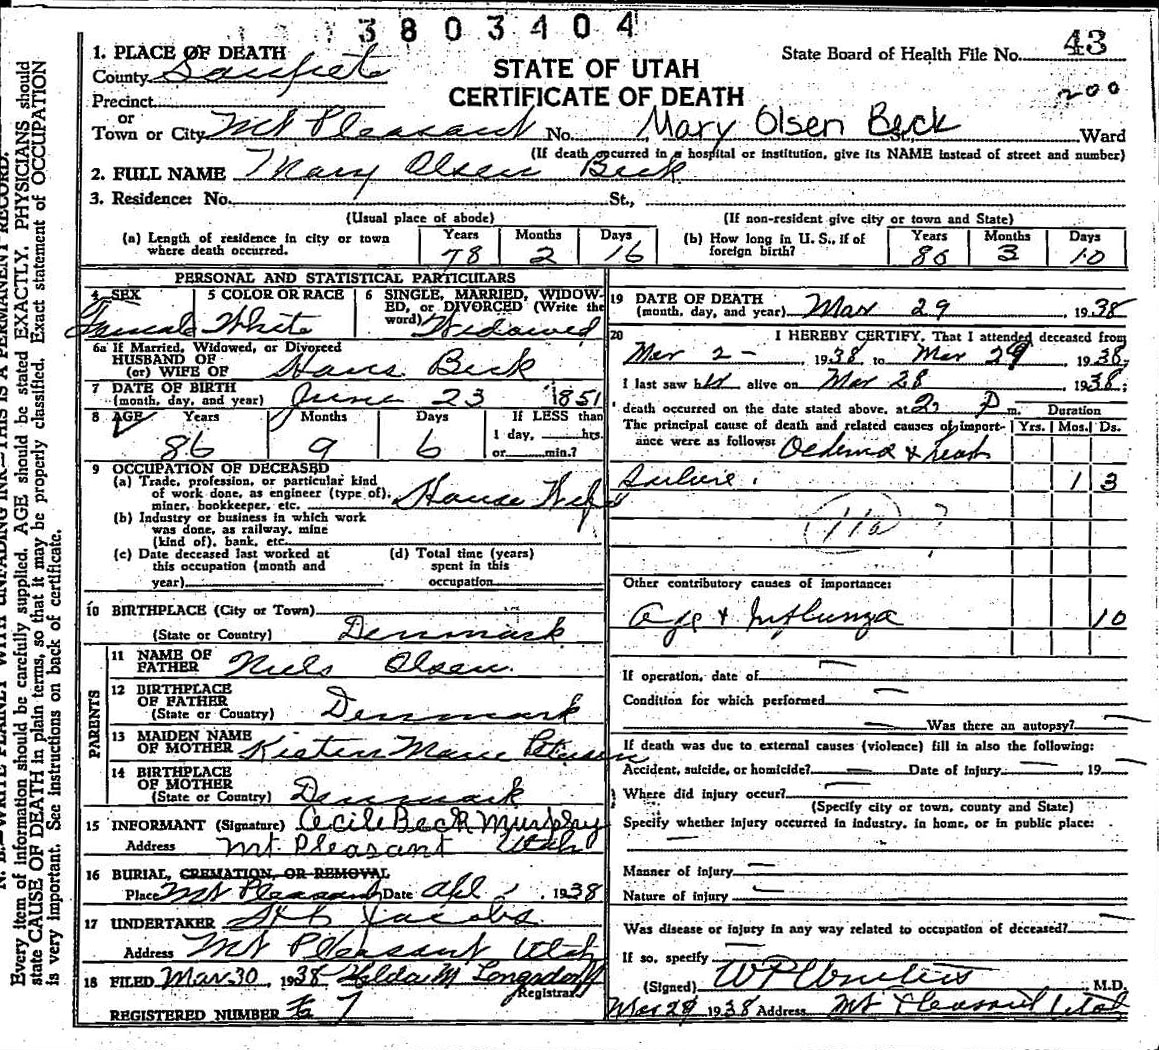 3803404
1. PLACE OF DEATH
State Board of Health File No. 43
County Sanpete
STATE OF UTAH
200
Precinct
CERTIFICATE OF DEATH
or
Town or City Mt Pleasant No. Mary Olsen Beck St., Ward
(If death occurred in a hospital or institution, give its NAME instead of street and number)
2. FULL NAME Mary Olsen Beck
3. Residence: No. St.,
(Usual place of abode) (If non-resident give city or town and State)
(a) Length of residence in city or town where death occurred. Years 78 Months 2 Days 16
(b) How long in U. S., if of foreign birth? Years 80 Months 3 Days 10
PERSONAL AND STATISTICAL PARTICULARS
4 SEX Female
5 COLOR OR RACE White
6 SINGLE, MARRIED, WIDOWED, OR DIVORCED (Write the word) Widowed
6a If Married, Widowed, or Divorced
HUSBAND OF
(or) WIFE OF Hans Beck
7 DATE OF BIRTH
(month, day, and year) June 23 1851
8 AGE Years Months Days If LESS than
86 9 6 1 day, hrs.
or min.?
9 OCCUPATION OF DECEASED
(a) Trade, profession, or particular kind
of work done, as engineer (type of),
miner, bookkeeper, etc. House Wife
(b) Industry or business in which work
was done, as railway, mine
(kind of), bank, etc.
(c) Date deceased last worked at
this occupation (month and
year)
(d) Total time (years)
spent in this
occupation
10 BIRTHPLACE (City or Town)
(State or Country) Denmark
PARENTS
11 NAME OF
FATHER Niels Olsen
12 BIRTHPLACE
OF FATHER
(State or Country) Denmark
13 MAIDEN NAME
OF MOTHER Kisten Marie
14 BIRTHPLACE
OF MOTHER
(State or Country) Denmark
15 INFORMANT (Signature) Cecile Beck Murphy
Address Mt Pleasant Utah
16 BURIAL, CREMATION, OR REMOVAL
Place Mt Pleasant Date Apl 1938
17 UNDERTAKER Jacobs
Address Mt Pleasant Utah
18 FILED Mar 30, 1938 Hilda M Longsdorf
Registrar
REGISTERED NUMBER 7
19 DATE OF DEATH
(month, day, and year) Mar 29, 1938
20 I HEREBY CERTIFY, That I attended deceased from
Mar 2- 1938 to Mar 29 1938;
I last saw h alive on Mar 28 1938;
death occurred on the date stated above, at 2 P m. Duration
The principal cause of death and related causes of importance were as follows: Yrs. Mos. Ds.
Oedema & heart
failure. 1 3
110 ?
Other contributory causes of importance:
Age & Influenza 10
If operation, date of
Condition for which performed
Was there an autopsy?
If death was due to external causes (violence) fill in also the following:
Accident, suicide, or homicide? Date of injury 19
Where did injury occur?
(Specify city or town, county and State)
Specify whether injury occurred in industry, in home, or in public place:
Manner of injury
Nature of injury
Was disease or injury in any way related to occupation of deceased?
If so, specify
(Signed) M.D.
Mar 29 1938 Address Mt Pleasant Utah
N. B.—WRITE PLAINLY WITH UNFADING INK—THIS IS A PERMANENT RECORD.
Every item of information should be carefully supplied. AGE should be stated EXACTLY. PHYSICIANS should
state CAUSE OF DEATH in plain terms, so that it may be properly classified. Exact statement of OCCUPATION
is very important. See instructions on back of certificate.